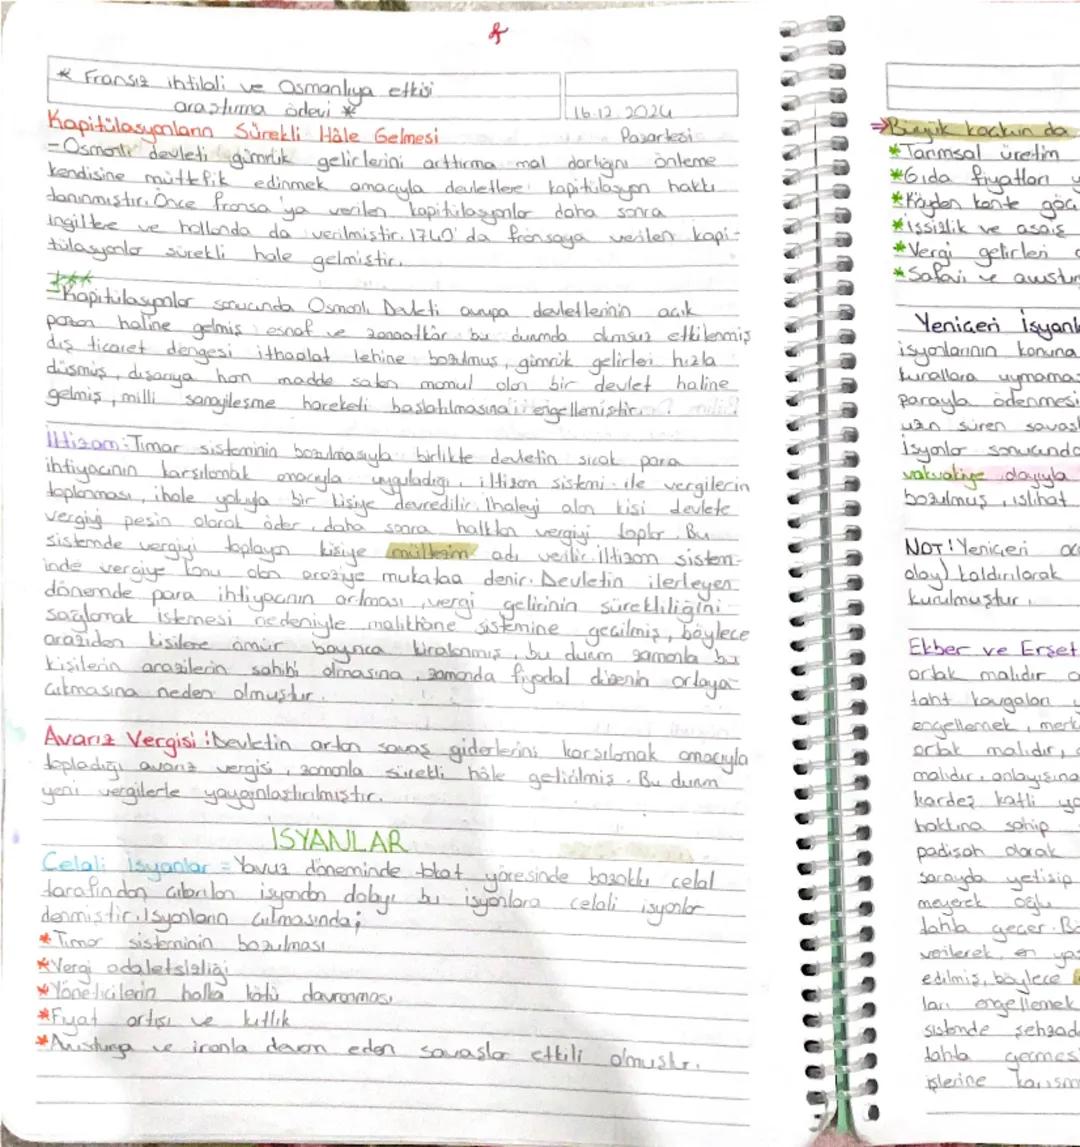 * Fransız ihtilali ve Osmanlıya etkisi
araştırma ödevi *
16.12.2024
Kapitülasyonların Sürekli Hâle Gelmesi
Pazartesi
- Osmanlı devleti gümrük gelirlerini arttırma mal darlığını önleme
kendisine müttefik edinmek amacıyla devletlere kapitülasyon hakkı
tanınmıştır. Önce fransa'ya verilen kapitülasyonlar daha sonra
ingiltere ve hollanda da verilmiştir. 1740' da fransaya verilen kapi-
tülasyonlar sürekli hale gelmiştir.
***
- Kapitülasyonlar sonucunda Osmanlı Devleti avrupa devletlerinin açık
pazarı haline gelmiş esnaf ve zanaatkâr bu durumda olumsuz etkilenmiş
dış ticaret dengesi ithaalat lehine bozulmuş, gümrük gelirleri hızla
düşmüş, dışarıya ham madde satan mamul alan bir devlet haline
gelmiş, milli sanayileşme hareketi başlatılmasını engellemiştir.
İltizam: Tımar sisteminin bozulmasıyla birlikte devletin sıcak para
ihtiyacının karşılamak amacıyla uyguladığı, iltizam sistemi ile vergilerin
toplanması, ihale yoluyla bir kişiye devredilir. İhaleyi alan kişi devlete
vergiyi peşin olarak öder, daha sonra halktan vergiyi toplar. Bu
sistemde vergiyi toplayan kişiye mültezim adı verilir. İltizam sistem-
inde vergiye konu olan araziye mukataa denir. Devletin ilerleyen
dönemde para ihtiyacının artması, vergi gelirinin sürekliliğini
sağlamak istemesi nedeniyle malikhane sistemine geçilmiş, böylece
araziden kişilere ömür boyunca kiralanmış, bu durum zamanla bu
kişilerin arazilerin sahibi olmasına, zamanda fiyodal düzenin ortaya
çıkmasına neden olmuştur.
Avarız Vergisi: Devletin artan savaş giderlerini karşılamak amacıyla
topladığı avarız vergisi, zamanla sürekli hâle getirilmiş. Bu durum
yeni vergilerle yaygınlaştırılmıştır.
İSYANLAR
Celali İsyanlar = Yavuz döneminde tokat yöresinde bozoklu celal
tarafından çıkarılan isyandan dolayı bu isyanlara celali isyanlar
denmiştir. İsyanların çıkmasında;
* Tımar sisteminin bozulması
* Vergi adaletsizliği
* Yöneticilerin halka kötü davranması
* Fiyat artışı ve kıtlık
* Avusturya ve iranla devam eden savaşlar etkili olmuştur.
⇒ Büyük kaçkun da
* Tarımsal üretim
* Gıda fiyatları y
* Köyden kente göç
* İşsizlik ve asayiş
* Vergi gelirleri
* Safavi ve avustur
Yeniçeri İsyanl
isyanlarının konuna
kurallara uymama
parayla ödenmesi
uzn süren savaşl
İsyanlar sonucunda
vakvakiye olayıyla
bozulmuş, ıslihat
NOT! Yeniçeri oc
olay) kaldırılarak
kurulmuştur.
Ekber ve Erşet
ortak malıdır
taht kavgaları y
engellemek, merk
ortak malıdır,
malıdır, anlayışına
kardeş katli ya
hakkına sahip
padişah olarak
sarayda yetişip
meyerek oğlu
tahta geçer. Bö
verilerek, en yaş
edilmiş, böylece
ları engellemek
sistende şehzad
tahta geçmesi
işlerine karışm